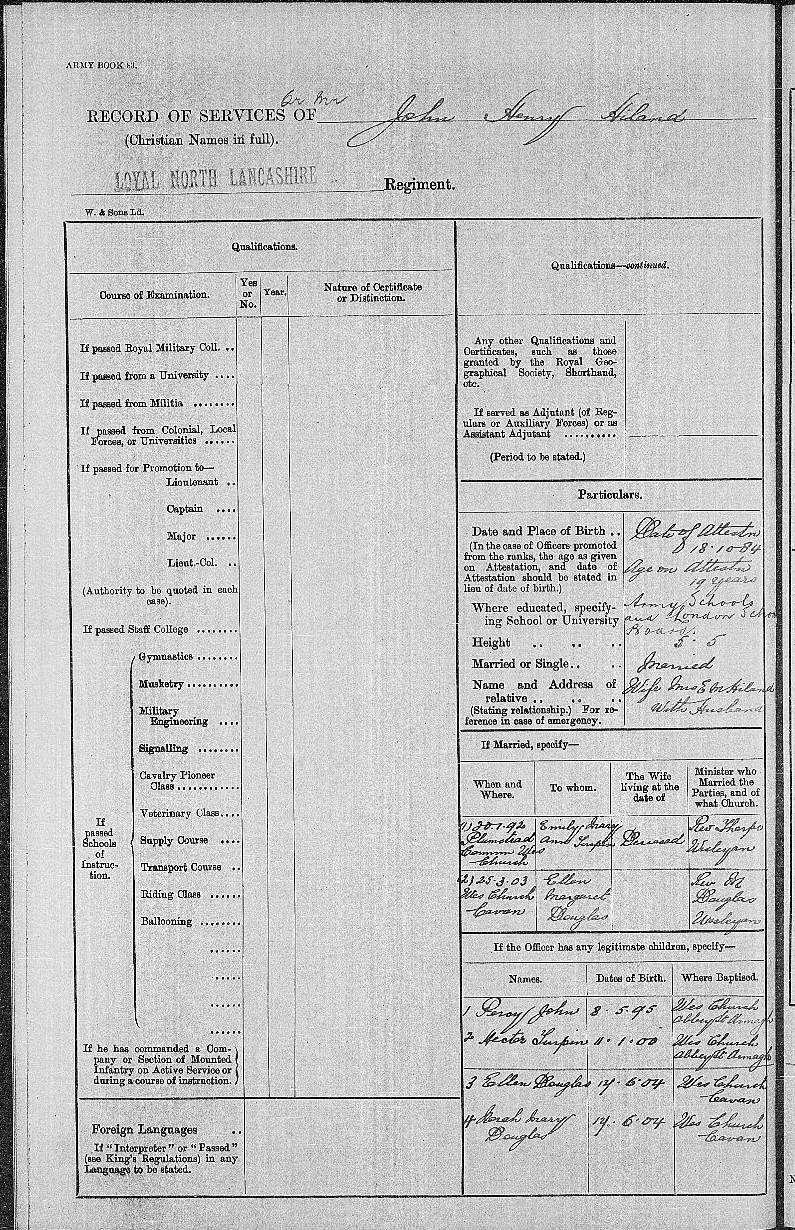 ARMY BOOK 83.
Qr Mr
RECORD OF SERVICES OF John Henry Hiland
(Christian Names in full).
LOYAL NORTH LANCASHIRE Regiment.
W. & Sons Ld.
Qualifications.
Course of Examination.
Yes
or
No.
Year.
Nature of Certificate
or Distinction.
If passed Royal Military Coll. ..
If passed from a University ....
If passed from Militia ........
If passed from Colonial, Local
Forces, or Universities ......
If passed for Promotion to—
Lieutenant ..
Captain ....
Major ......
Lieut.-Col. ..
(Authority to be quoted in each
case).
If passed Staff College ........
If
passed
Schools
of
Instruc-
tion.
Gymnastics ........
Musketry ..........
Military
Engineering ....
Signalling ........
Cavalry Pioneer
Class ............
Veterinary Class....
Supply Course ....
Transport Course ..
Riding Class ......
Ballooning ........
......
......
......
......
If he has commanded a Com-
pany or Section of Mounted
Infantry on Active Service or
during a course of instruction.
Foreign Languages ..
If "Interpreter" or "Passed"
(see King's Regulations) in any
Language to be stated.
Qualifications—continued.
Any other Qualifications and
Certificates, such as those
granted by the Royal Geo-
graphical Society, Shorthand,
etc.
If served as Adjutant (of Reg-
ulars or Auxiliary Forces) or as
Assistant Adjutant ..........
(Period to be stated.)
Particulars.
Date and Place of Birth ..
(In the case of Officers promoted
from the ranks, the age as given
on Attestation, and date of
Attestation should be stated in
lieu of date of birth.)
Date of Attestn
18.10.84
Age on Attestn
19 years
Where educated, specify-
ing School or University
Army Schools
and London School
Board.
Height .. .. .. 5. 5
Married or Single.. .. Married
Name and Address of
relative .. .. ..
(Stating relationship.) For re-
ference in case of emergency.
Wife Mrs E M Hiland
With Husband
If Married, specify—
When and
Where.
To whom.
The Wife
living at the
date of
Minister who
Married the
Parties, and of
what Church.
(1) 30.1.92
Plumstead
Common Wes
Church
Emily Mary
Ann Turpin
Deceased
Rev Tharpe
Wesleyan
(2) 25.3.03
Wes Church
Cavan
Ellen
Margaret
Douglas
Rev
Douglas
Wesleyan
If the Officer has any legitimate children, specify—
Names.
Dates of Birth.
Where Baptised.
1 Percy John 8.5.95 Wes Church
Abbey St Armagh
2 Hector Turpin 11.1.00 Wes Church
Abbey St Armagh
3 Ellen Douglas 14.6.04 Wes Church
Cavan
4 Sarah Mary
Douglas
14.6.04 Wes Church
Cavan